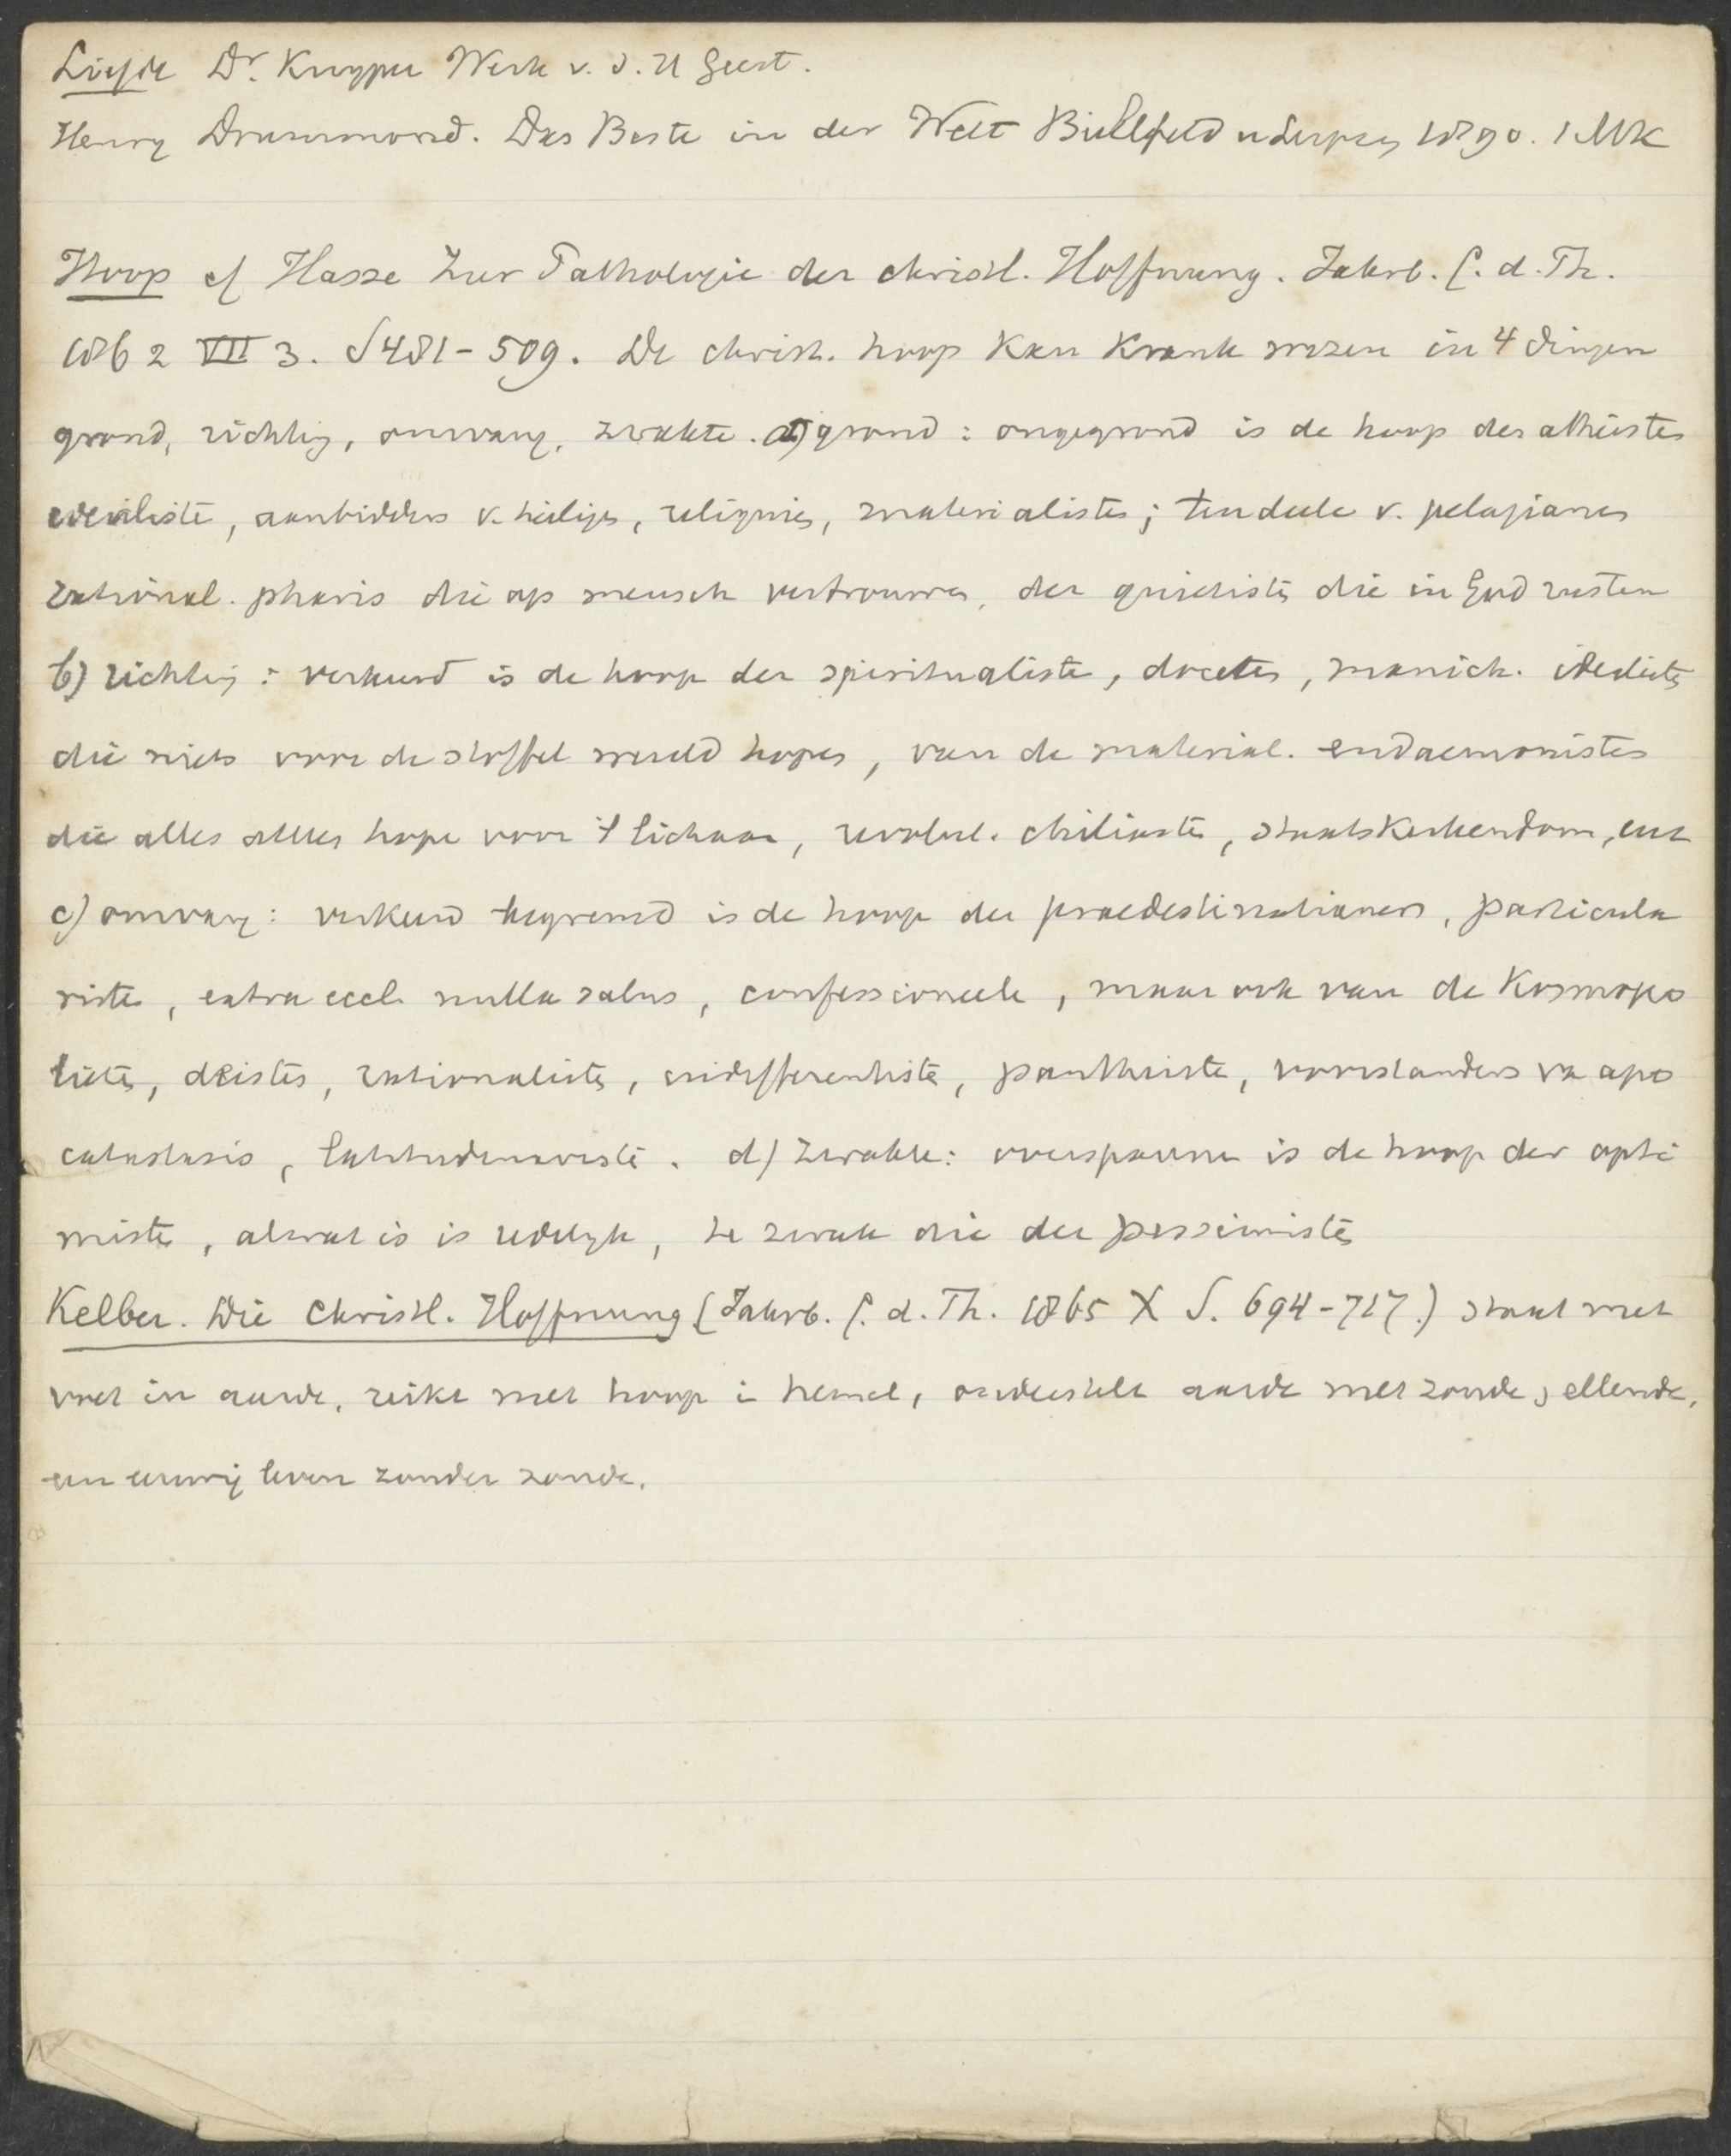 Liefde Dr. Kuyper Werk v. d. H Geest.
Henry Drummond. Das Beste in der Welt Bielefeld u Leipzig 1890. 1 Mk
Hoop cf Hasse Zur Pathologie der christl. Hoffnung. Jahrb. f. d. Th.
1862 VII 3. S 481-509. De christ. hoop kan krank wezen in 4 dingen
grond, richting, omvang, zwakte. a) grond: ongegrond is de hoop der atheisten
idealiste, aanbidders v. heilige, reliquies, materialisten; tendeele v. pelagianen
rational. pharis die op mensch vertrouwen, der quietisten die in God rusten
b) richting: verkeerd is de hoop der spiritualisten, doceten, manich. idealisten
die niets voor de stoffel wereld hopen, van de material. eudaemonisten
die alles alles hope voor 't lichaam, revolut. chiliasten, staatskerkendom, enz
c) omvang: verkeerd begrensd is de hoop der praedestinatianers, particula
risten, extra eccl. nulla salus, confessioneele, maar ook van de Kosmopo
lieten, deisten, rationalisten, indifferentisten, pantheisten, voorstanders vn apo
catastasis, latitudinaristen. d) zwakte: overspannen is de hoop der opti
misten, al wat is is redelyk, te zwak die der pessimisten
Kelber. Die christl. Hoffnung (Jahrb. f. d. Th. 1865 X S. 694-717.) staat met
voet in aarde, reikt met hoop i hemel, onderstelt aarde met zonde, ellende,
een eeuwig leven zonder zonde.